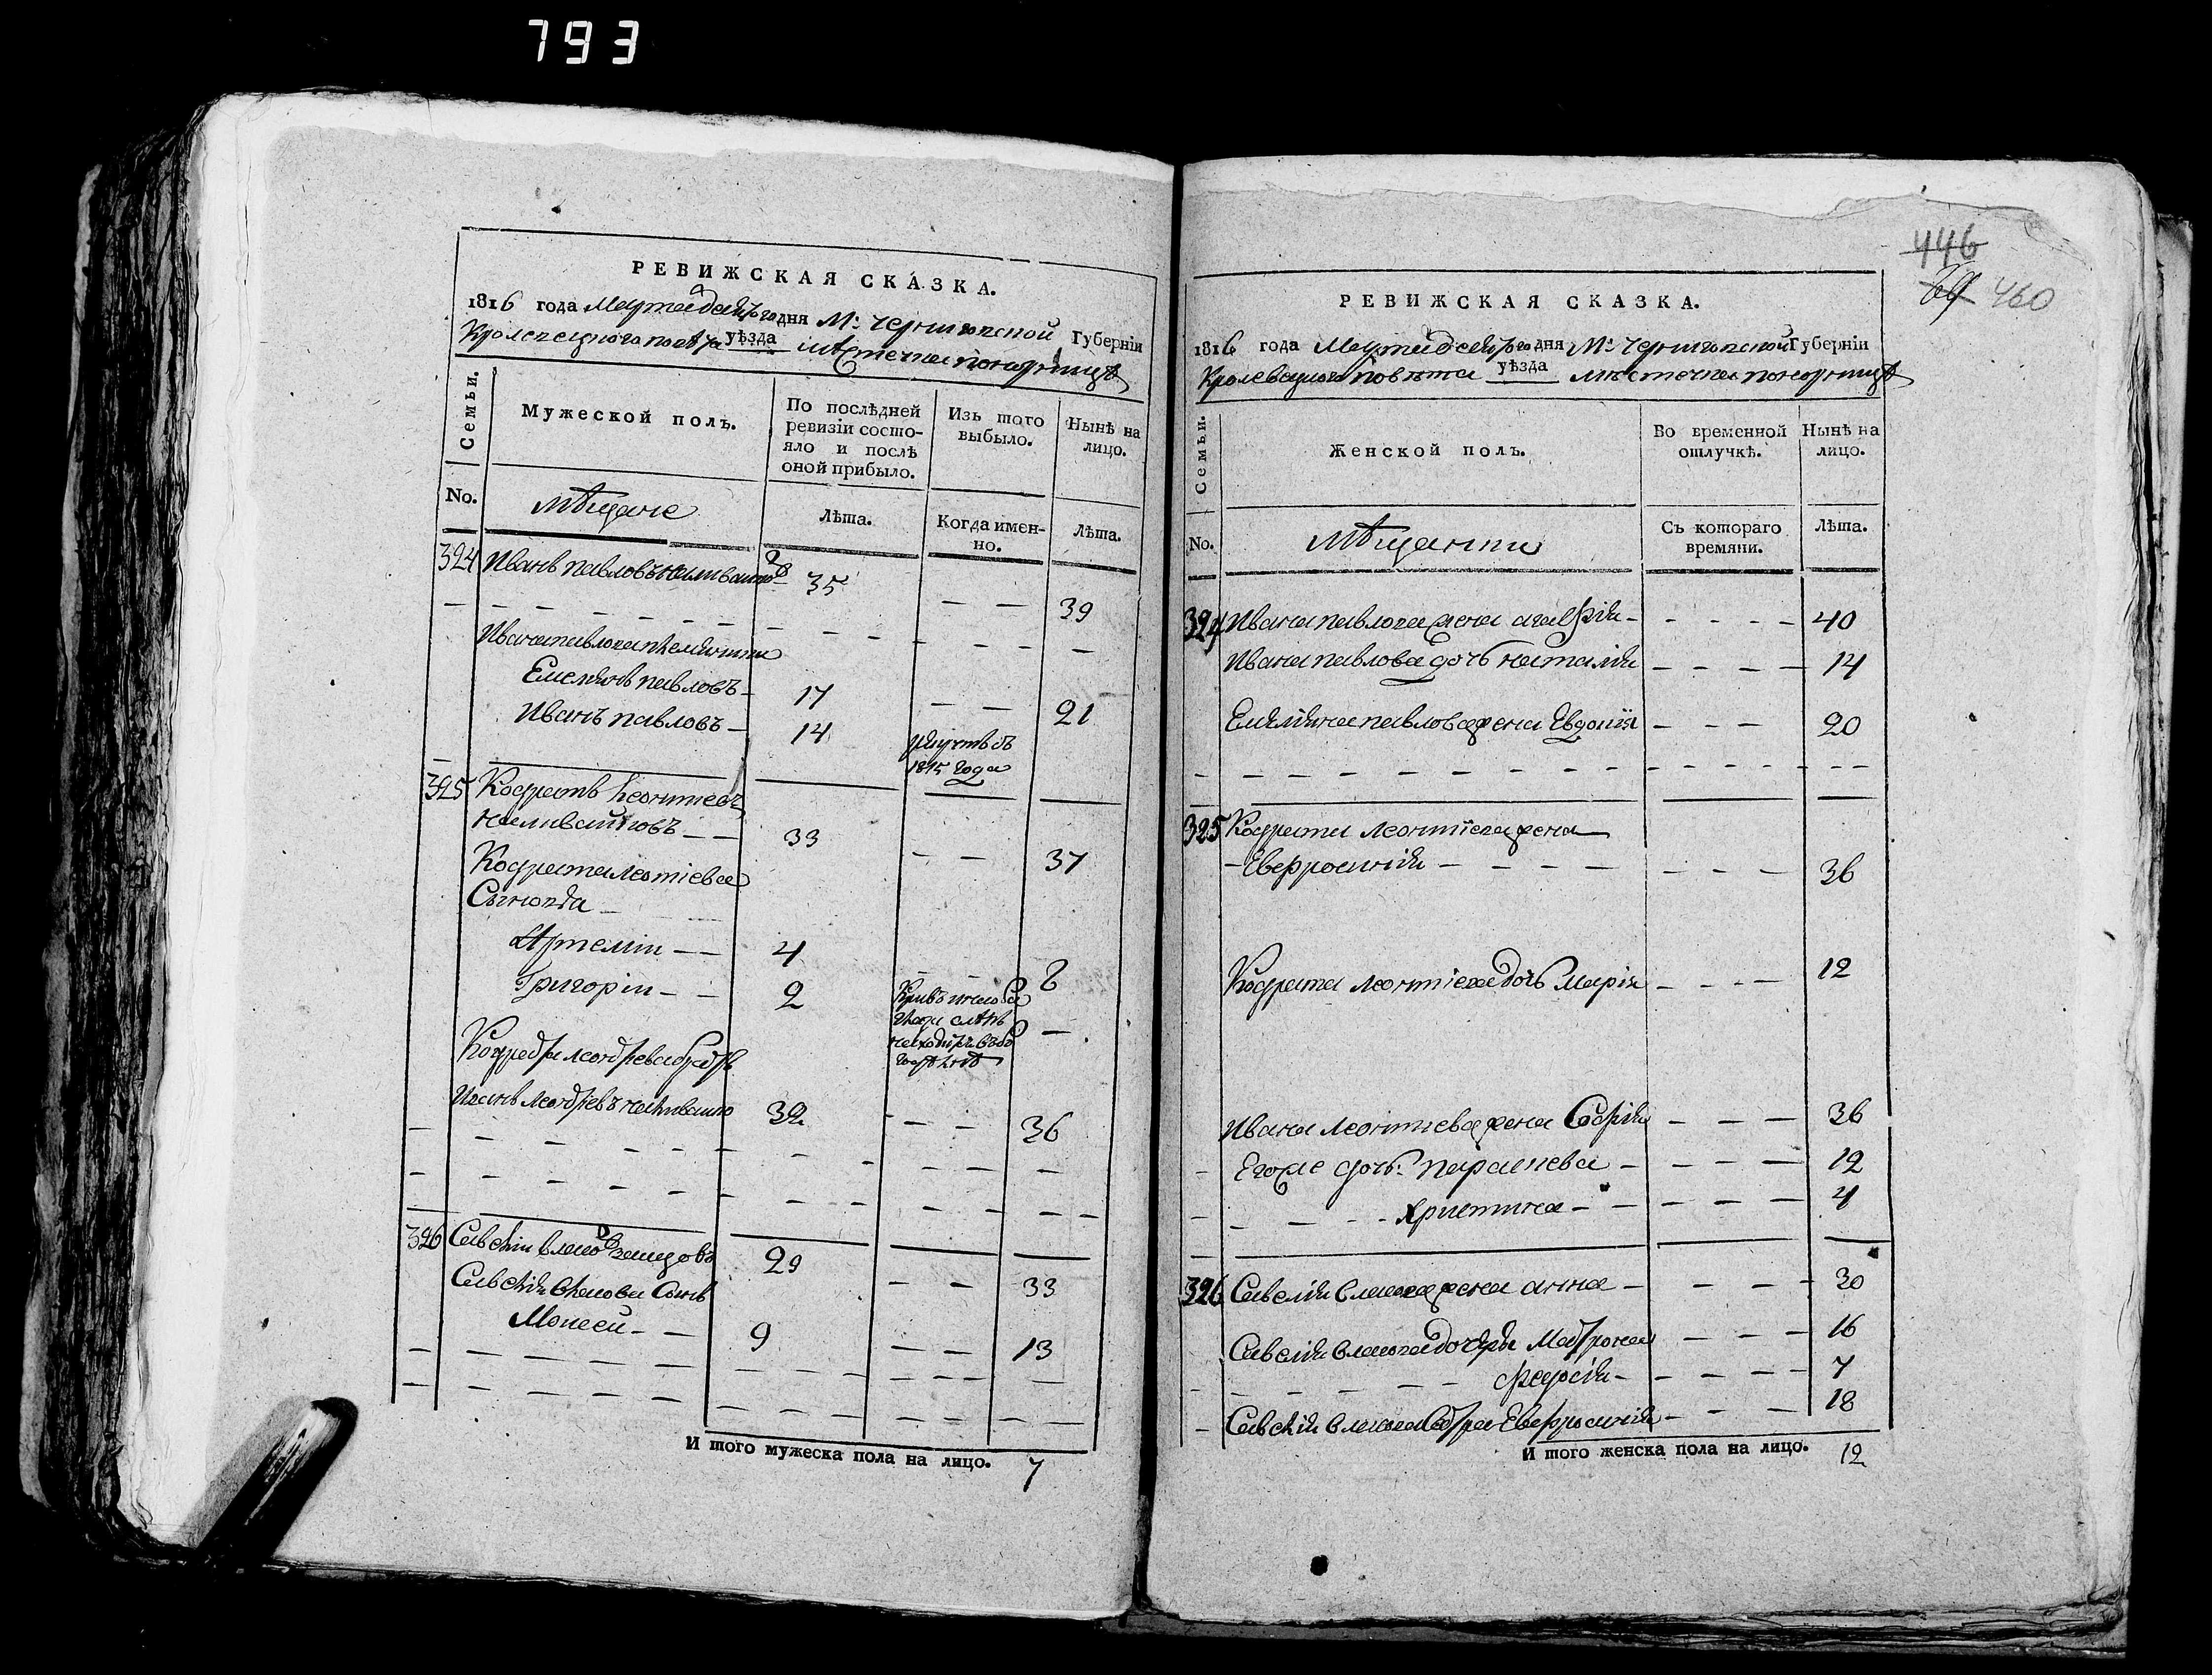 793
РЕВИЖСКАЯ СКАЗКА.
1816 года Марта дня М: Черниговской Губернiи
Кролевецкого повѣта уѣзда мѣстечка понорницѣ
Семьи.
Мужеской полъ.
По послѣдней ревизiи состояло и послѣ оной прибыло.
Изъ того выбыло.
Нынѣ на лицо.
No.
мѣщане
Лѣта.
Когда именно.
Лѣта.
324 Иванъ павловъ 35
39
Ивана павлова племянники
Емелянъ павловъ 17 21
Иванъ павловъ 14
1815 года
325 Кодратъ Леонтиевъ
наливайковъ 33
37
Кодрата Леонтiева
Сыновья
Артемiи 4
8
Григорiи 2
Кодрата Леонтiева братъ
Иванъ Леонтiевъ наливайко 32 36
326 Савелiи власовъ 29
33
Савелiя власова Сынъ
Моисей 9
13
И того мужеска пола на лицо. 7
446
460
РЕВИЖСКАЯ СКАЗКА.
1816 года Марта дня М: Черниговской Губернiи
Кролевецкого повѣта уѣзда мѣстечка понорницѣ
Семьи.
Женской полъ.
Во временной отлучкѣ.
Нынѣ на лицо.
No.
мѣщанки
Съ котораго времяни.
Лѣта.
324 Ивана павлова жена агафiя 40
Ивана павлова дочь наталiя 14
Емелияна павлова жена Евдокiя 20
325 Кодрата Леонтiева жена
Евфросинiя 36
Кодрата Леонтiева дочь Марiя 12
Ивана Леонтиева жена Софiя 36
Егоже дочь: Параскева 12
Христина 4
326 Савелiя власова жена анна 30
Савелiя власова дочери Матрона 16
федосiя 7
Савелiя власова Сестра Евфросинiя 18
И того женска пола на лицо. 12